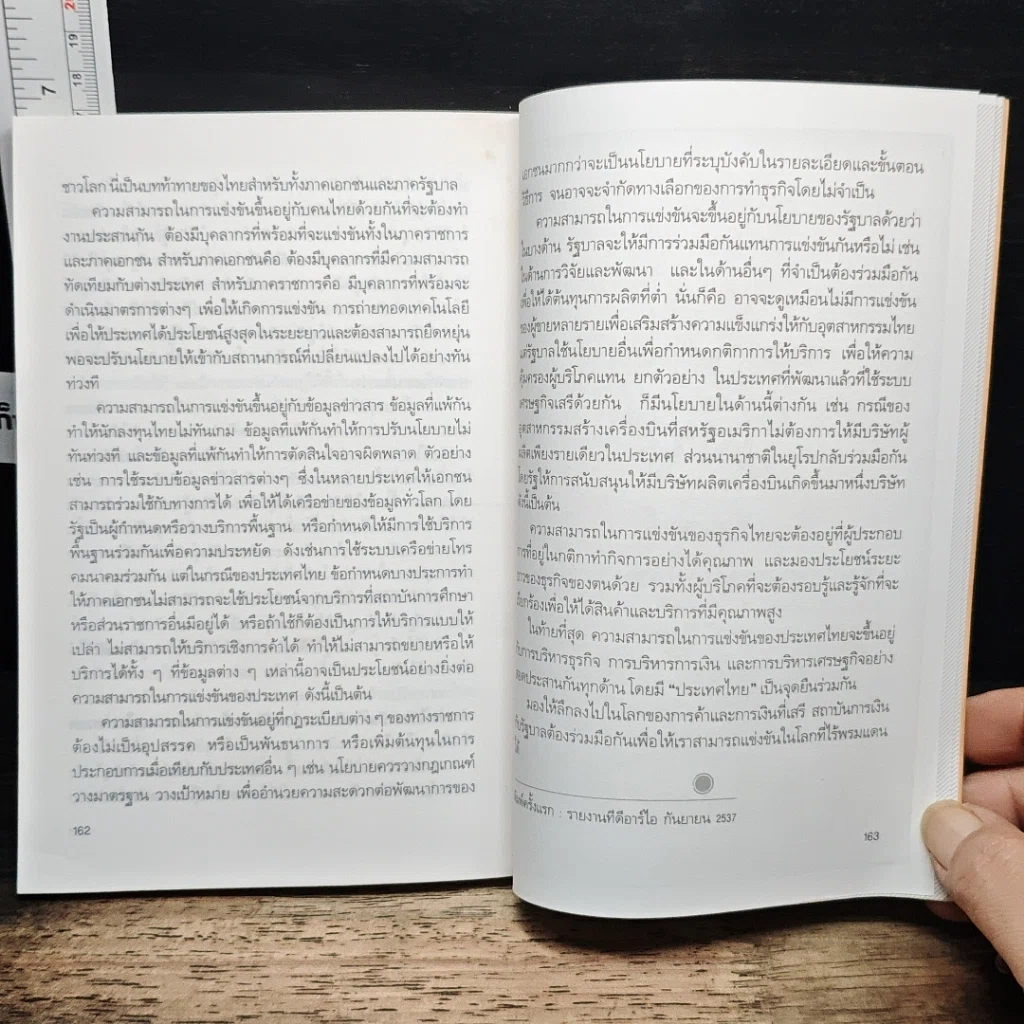 ชาวโลก นี่เป็นบทท้าทายของไทยสำหรับทั้งภาคเอกชนและภาครัฐบาล
ความสามารถในการแข่งขันขึ้นอยู่กับคนไทยด้วยกันที่จะต้องทำ
งานประสานกัน ต้องมีบุคลากรที่พร้อมที่จะแข่งขันทั้งในภาคราชการ
และภาคเอกชน สำหรับภาคเอกชนคือ ต้องมีบุคลากรที่มีความสามารถ
ทัดเทียมกับต่างประเทศ สำหรับภาคราชการคือ มีบุคลากรที่พร้อมจะ
ดำเนินมาตรการต่างๆ เพื่อให้เกิดการแข่งขัน การถ่ายทอดเทคโนโลยี
เพื่อให้ประเทศได้ประโยชน์สูงสุดในระยะยาวและต้องสามารถยืดหยุ่น
พอจะปรับนโยบายให้เข้ากับสถานการณ์ที่เปลี่ยนแปลงไปได้อย่างทัน
ท่วงที
ความสามารถในการแข่งขันขึ้นอยู่กับข้อมูลข่าวสาร ข้อมูลที่แพ้กัน
ทำให้นักลงทุนไทยไม่ทันเกม ข้อมูลที่แพ้กันทำให้การปรับนโยบายไม่
ทันท่วงที และข้อมูลที่แพ้กันทำให้การตัดสินใจอาจผิดพลาด ตัวอย่าง
เช่น การใช้ระบบข้อมูลข่าวสารต่างๆ ซึ่งในหลายประเทศให้เอกชน
สามารถร่วมใช้กับทางการได้ เพื่อให้ได้เครือข่ายของข้อมูลทั่วโลก โดย
รัฐเป็นผู้กำหนดหรือวางบริการพื้นฐาน หรือกำหนดให้มีการใช้บริการ
พื้นฐานร่วมกันเพื่อความประหยัด ดังเช่นการใช้ระบบเครือข่ายโทร
คมนาคมร่วมกัน แต่ในกรณีของประเทศไทย ข้อกำหนดบางประการทำ
ให้ภาคเอกชนไม่สามารถจะใช้ประโยชน์จากบริการที่สถาบันการศึกษา
หรือส่วนราชการอื่นมีอยู่ได้ หรือถ้าใช้ก็ต้องเป็นการให้บริการแบบให้
เปล่า ไม่สามารถให้บริการเชิงการค้าได้ ทำให้ไม่สามารถขยายหรือให้
บริการได้ทั้ง ๆ ที่ข้อมูลต่าง ๆ เหล่านี้อาจเป็นประโยชน์อย่างยิ่งต่อ
ความสามารถในการแข่งขันของประเทศ ดังนี้เป็นต้น
ความสามารถในการแข่งขันอยู่ที่กฎระเบียบต่าง ๆ ของทางราชการ
ต้องไม่เป็นอุปสรรค หรือเป็นพันธนาการ หรือเพิ่มต้นทุนในการ
ประกอบการเมื่อเทียบกับประเทศอื่น ๆ เช่น นโยบายควรวางกฎเกณฑ์
วางมาตรฐาน วางเป้าหมาย เพื่ออำนวยความสะดวกต่อพัฒนาการของ
162
เอกชนมากกว่าจะเป็นนโยบายที่ระบุบังคับในรายละเอียดและขั้นตอน
วิธีการ จนอาจจะจำกัดทางเลือกของการทำธุรกิจโดยไม่จำเป็น
ความสามารถในการแข่งขันจะขึ้นอยู่กับนโยบายของรัฐบาลด้วยว่า
ในบางด้าน รัฐบาลจะให้มีการร่วมมือกันแทนการแข่งขันกันหรือไม่ เช่น
ในด้านการวิจัยและพัฒนา และในด้านอื่นๆ ที่จำเป็นต้องร่วมมือกัน
เพื่อให้ได้ต้นทุนการผลิตที่ต่ำ นั่นก็คือ อาจจะดูเหมือนไม่มีการแข่งขัน
ของผู้ขายหลายรายเพื่อเสริมสร้างความแข็งแกร่งให้กับอุตสาหกรรมไทย
แต่รัฐบาลใช้นโยบายอื่นเพื่อกำหนดกติกาการให้บริการ เพื่อให้ความ
คุ้มครองผู้บริโภคแทน ยกตัวอย่าง ในประเทศที่พัฒนาแล้วที่ใช้ระบบ
เศรษฐกิจเสรีด้วยกัน ก็มีนโยบายในด้านนี้ต่างกัน เช่น กรณีของ
อุตสาหกรรมสร้างเครื่องบินที่สหรัฐอเมริกาไม่ต้องการให้มีบริษัทผู้
ผลิตเพียงรายเดียวในประเทศ ส่วนนานาชาติในยุโรปกลับร่วมมือกัน
โดยรัฐให้การสนับสนุนให้มีบริษัทผลิตเครื่องบินเกิดขึ้นมาหนึ่งบริษัท
ดังนี้เป็นต้น
ความสามารถในการแข่งขันของธุรกิจไทยจะต้องอยู่ที่ผู้ประกอบ
การที่อยู่ในกติกาทำกิจการอย่างได้คุณภาพ และมองประโยชน์ระยะ
ยาวของธุรกิจของตนด้วย รวมทั้งผู้บริโภคที่จะต้องรอบรู้และรู้จักที่จะ
เรียกร้องเพื่อให้ได้สินค้าและบริการที่มีคุณภาพสูง
ในท้ายที่สุด ความสามารถในการแข่งขันของประเทศไทยจะขึ้นอยู่
กับการบริหารธุรกิจ การบริหารการเงิน และการบริหารเศรษฐกิจอย่าง
สอดประสานกันทุกด้าน โดยมี “ประเทศไทย” เป็นจุดยืนร่วมกัน
มองให้ลึกลงไปในโลกของการค้าและการเงินที่เสรี สถาบันการเงิน
กับรัฐบาลต้องร่วมมือกันเพื่อให้เราสามารถแข่งขันในโลกที่ไร้พรมแดน
ได้
พิมพ์ครั้งแรก : รายงานทีดีอาร์ไอ กันยายน 2537
163
7
20
19
18